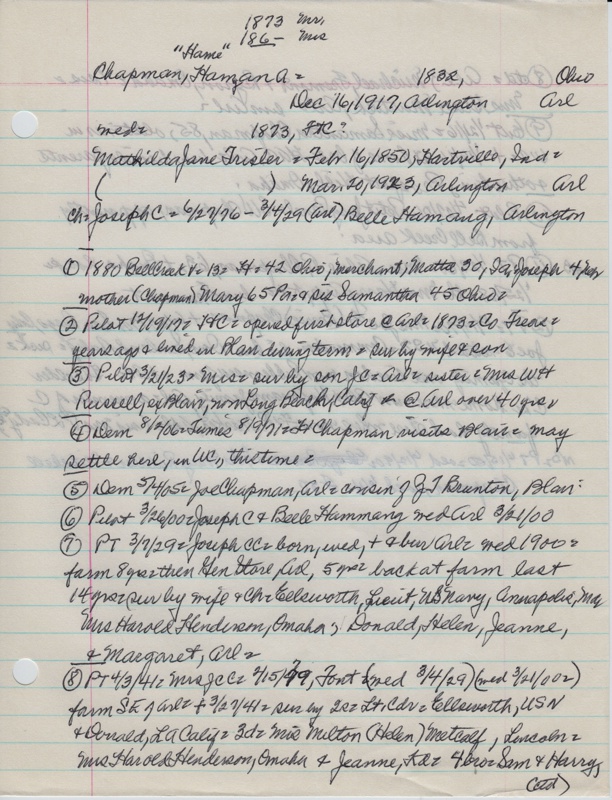 1873 Mr.
186- Mrs
"Hame"
Chapman, Hamzan A = 1832, Ohio
Dec 16, 1917, Arlington Arl
med= 1873, FtC?
Mathilda Jane Trisler = Febr 16, 1850, Hartville, Ind =
( ) Mar. 20, 1923, Arlington Arl
ch= Joseph C = 6/27/76 - 3/4/29 (Arl) Belle Hamang, Arlington
① 1880 Bellcreek = 13 = H = 42 Ohio, merchant; Matta 30, Ia; Joseph 4 Nebr
mother (Chapman) Mary 65 Pa = & sis Samantha 45 Ohio =
② Pilot 12/19/17 = HC = opened first store @ Arl = 1873 = Co Treas =
years ago & lived in Blair during term = sur by wife & son
③ Pilot 3/21/23 = Mrs = sur by son JC = Arl = sister = Mrs WH
Russell, ex Blair, now Long Beach, Calif & @ Arl over 40 yrs
④ Dem 8/2/06 = Times 8/9/71 = Chapman visits Blair = may
settle here, in WC, this time =
⑤ Dem 5/4/05 = Joe Chapman, Arl = cousin of Brunton, Blair =
⑥ Pilot 3/26/00 = Joseph C & Belle Hammang med Arl 3/21/00
⑦ PT 3/7/29 = Joseph CC = born, wed, + & bur Arl = med 1900 =
farm 8 yrs = then Gen Store, Arl, 5 yrs = back at farm last
14 yrs = sur by wife & Ch = Ellsworth, Lieut, US Navy, Annapolis, Md
Mrs Harold Henderson, Omaha, Donald, Helen, Jeanne,
& Margaret, Arl =
⑧ PT 4/3/41 = Mrs JCC = 2/15/79, Font (wed 3/4/29) (wed 3/21/00 =)
farm SE of Arl = + 3/27/41 = sur by 2s = Lt. Cdr = Ellsworth, USN
& Donald, LA Calif = 3d = Mrs Milton (Helen) Metcalf, Lincoln =
Mrs Harold Henderson, Omaha & Jeanne, = 4 bro = Sam & Harry,
(ctd)